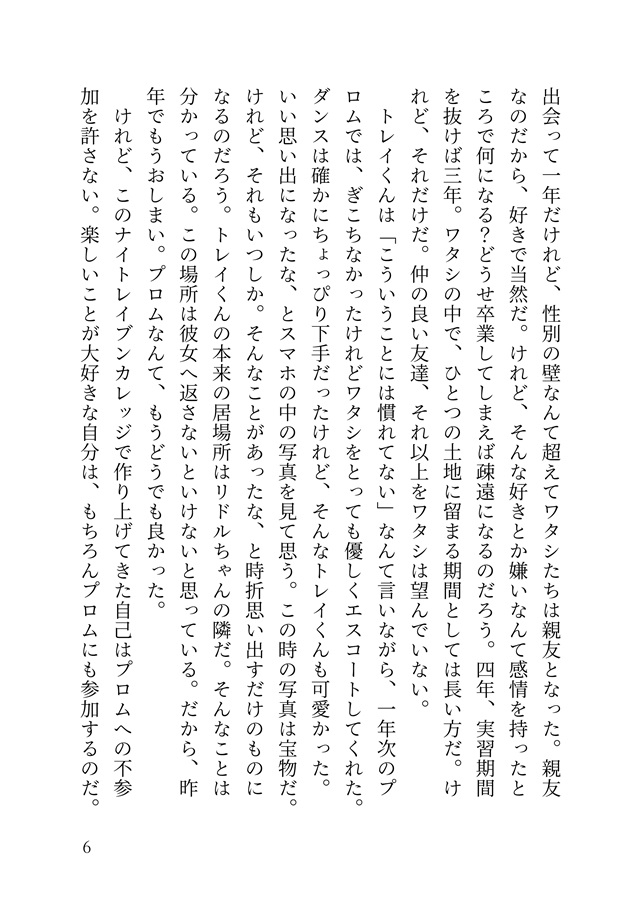 出会って一年だけれど、性別の壁なんて超えてワタシたちは親友となった。親友
なのだから、好きで当然だ。けれど、そんな好きとか嫌いなんて感情を持ったと
ころで何になる？どうせ卒業してしまえば疎遠になるのだろう。四年、実習期間
を抜けば三年。ワタシの中で、ひとつの土地に留まる期間としては長い方だ。け
れど、それだけだ。仲の良い友達、それ以上をワタシは望んでいない。
　トレイくんは「こういうことには慣れてない」なんて言いながら、一年次のプ
ロムでは、ぎこちなかったけれどワタシをとっても優しくエスコートしてくれた。
ダンスは確かにちょっぴり下手だったけれど、そんなトレイくんも可愛かった。
いい思い出になったな、とスマホの中の写真を見て思う。この時の写真は宝物だ。
けれど、それもいつしか。そんなことがあったな、と時折思い出すだけのものに
なるのだろう。トレイくんの本来の居場所はリドルちゃんの隣だ。そんなことは
分かっている。この場所は彼女へ返さないといけないと思っている。だから、昨
年でもうおしまい。プロムなんて、もうどうでも良かった。
　けれど、このナイトレイブンカレッジで作り上げてきた自己はプロムへの不参
加を許さない。楽しいことが大好きな自分は、もちろんプロムにも参加するのだ。
6